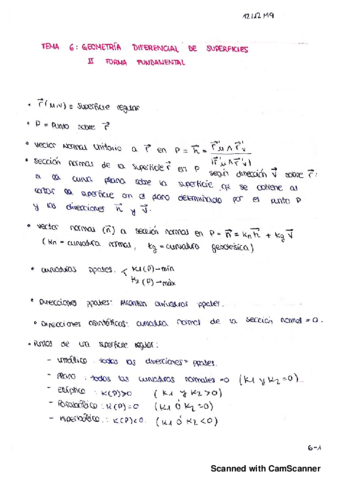 TEMA 6: GEOMETRÍA DIFERENCIAL DE SUPERFICIES
II FORMA FUNDAMENTAL
• r⃗(u,v) = Superficie regular
• P = Punto sobre r⃗
• Vector Normal Unitario a r⃗ en P = n⃗ = r⃗'u ∧ r⃗'v / |r⃗'u ∧ r⃗'v|
• Sección normal de la superficie r⃗ en P según dirección v⃗ sobre r⃗:
a la curva plana sobre la superficie que se obtiene al
cortar la superficie con el plano determinado por el punto P
y las direcciones n⃗ y v⃗.
• Vector normal (n⃗) a sección normal en P = n⃗ = kn n⃗ + kg v⃗
(kn = curvatura normal, kg = curvatura geodésica)
• curvaturas ppales: k1(P) → mín
k2(P) → máx
• Direcciones ppales: curvaturas ppales.
• Direcciones asintóticas: curvatura normal de la sección normal = 0.
• Puntos de una superficie regular:
- umbílico: todas las direcciones = ppales.
- plano: todas las curvaturas normales = 0 (k1 y k2 = 0).
- Elíptico: K(P)>0 (k1 y k2 > 0)
- Parabólico: K(P)=0 (k1 ó k2 = 0)
- Hiperbólico: K(P)<0. (k1 ó k2 < 0)
6-1
Scanned with CamScanner